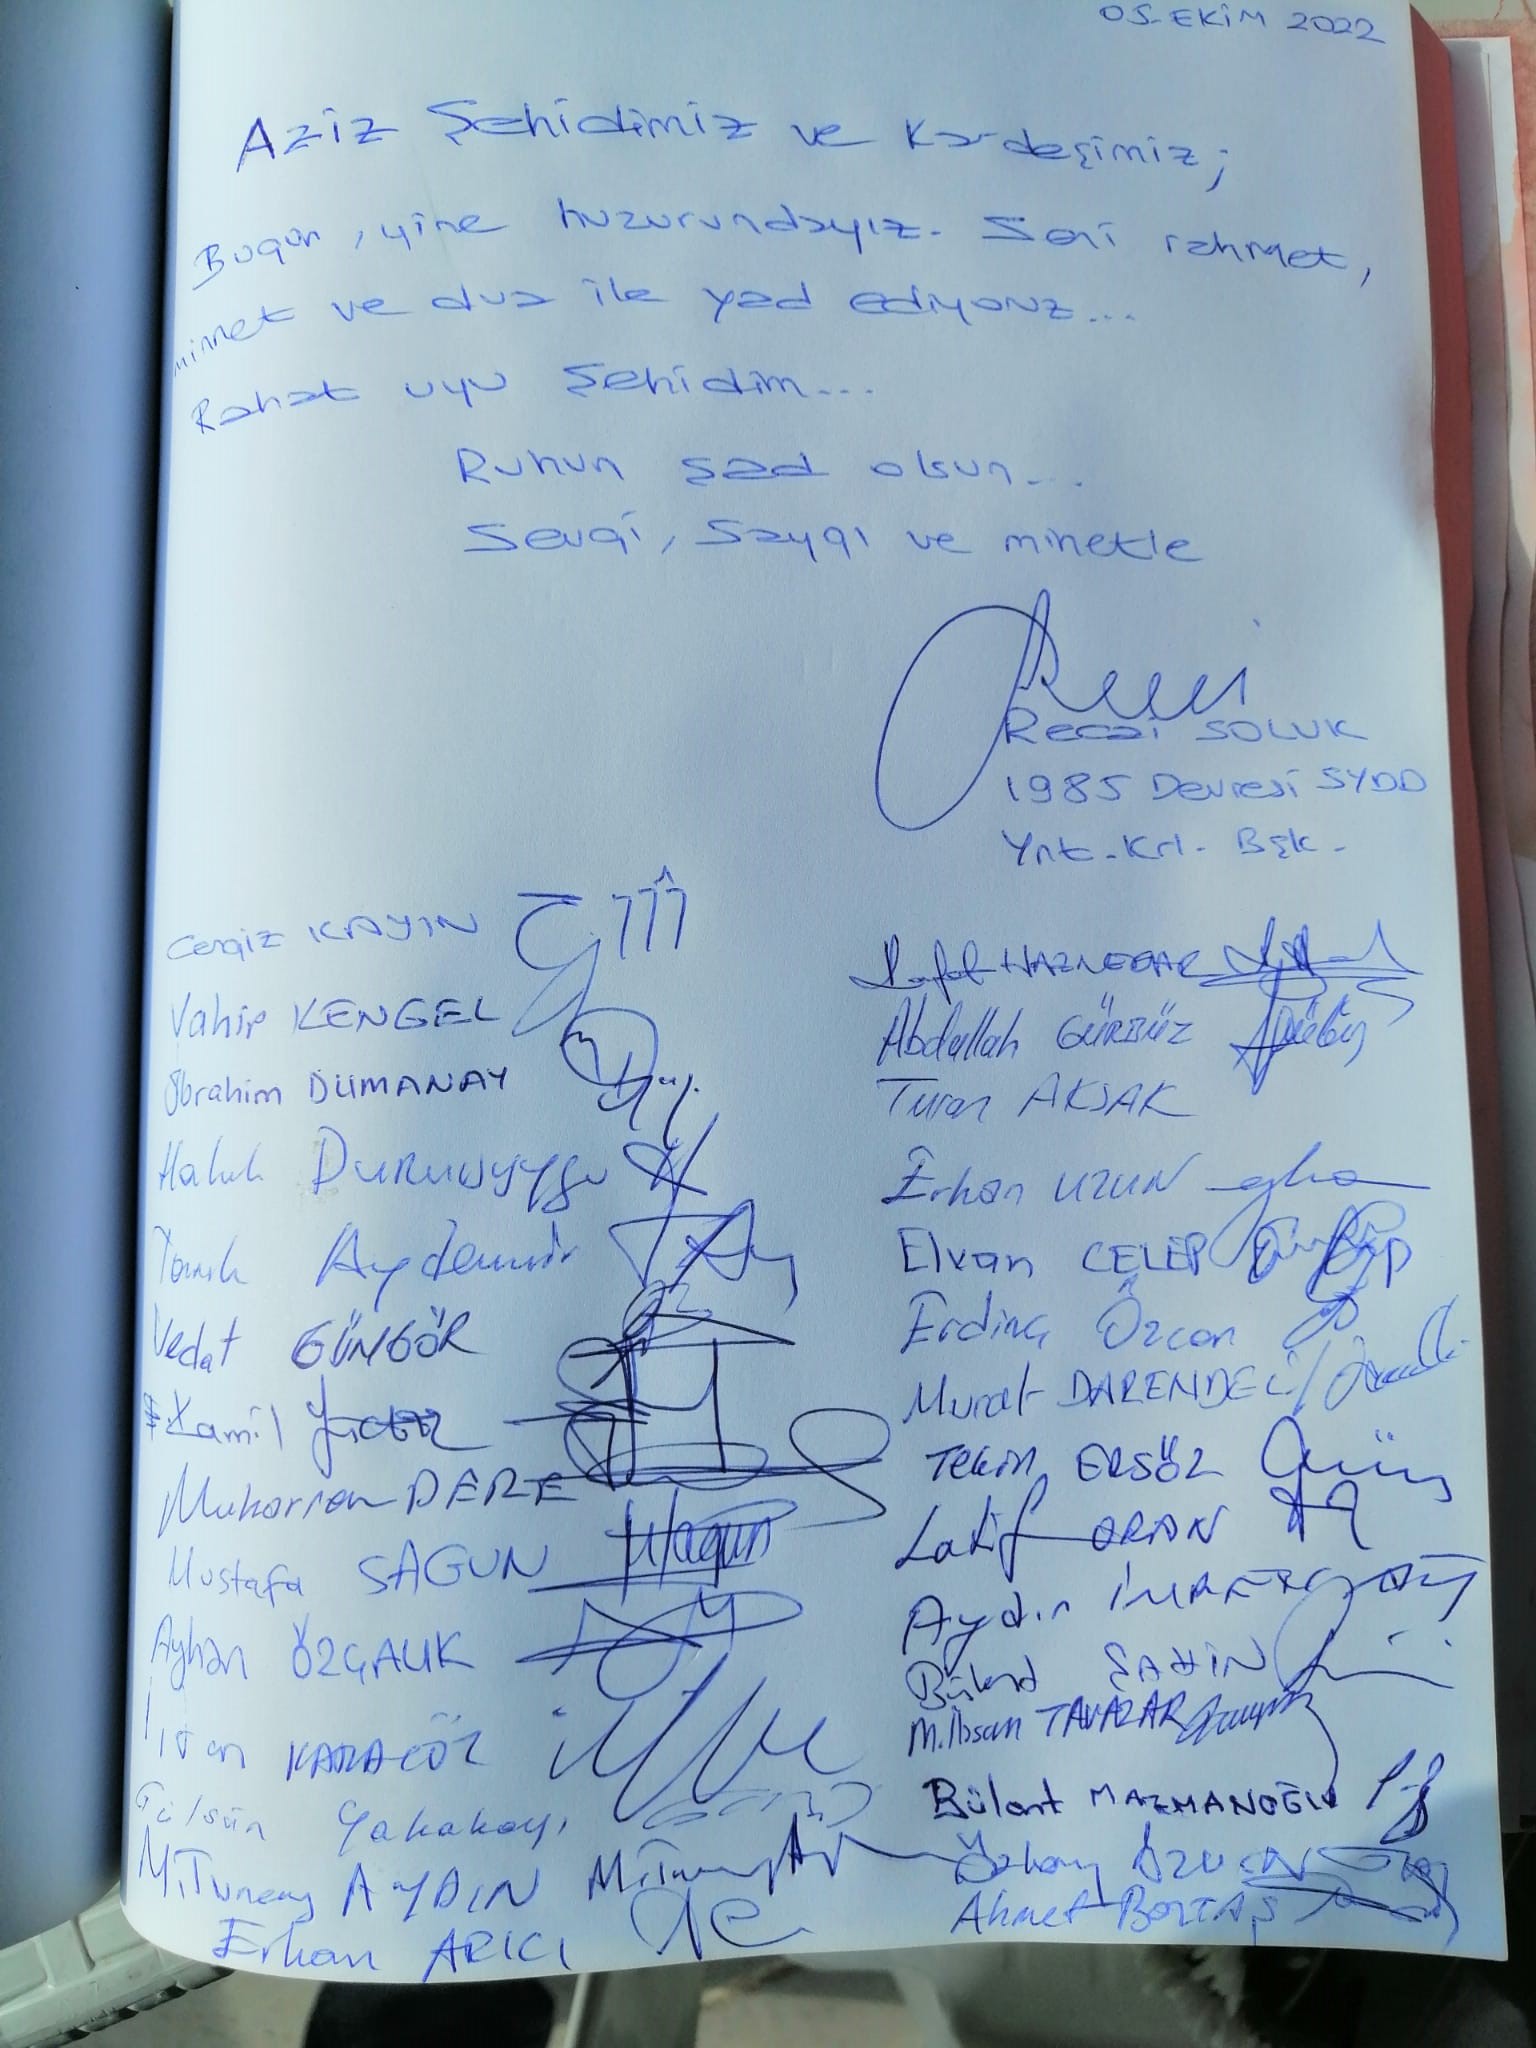 05 EKİM 2022
Aziz Şehidimiz ve Kardeşimiz;
Bugün, yine huzurundayız. Seni rahmet,
minnet ve dua ile yad ediyoruz...
Rahat uyu Şehidim...
Ruhun şad olsun...
Sevgi, Saygı ve minetle
Recai SOLUK
1985 Devresi SYDD
Ynt. Krl. Bşk.
Cengiz KAYIN
Vahip KENGEL
İbrahim DUMANAY
Haluk Duruuygu
Tarık Aydemir
Vedat GÜNGÖR
Kamil
Muharrem DERE
Mustafa SAGUN
Ayhan ÖZÇALIK
KARAGÖZ
Gülsün Yakakayı
M.Tuncay AYDIN
Erkan ARICI
HAZNEDAR
Abdullah GÜRBÜZ
Turan AKSAK
Erhan UZUN
Elvan ÇELEP
Erdinç Özcan
Murat DARENDELİ
Tekin ERSÖZ
Latif ORAN
Aydın
Bülent ŞAHİN
M.İhsan TAVAZAR
Bülent MAZMANOĞLU
Özkan
Ahmet BOZTAŞ